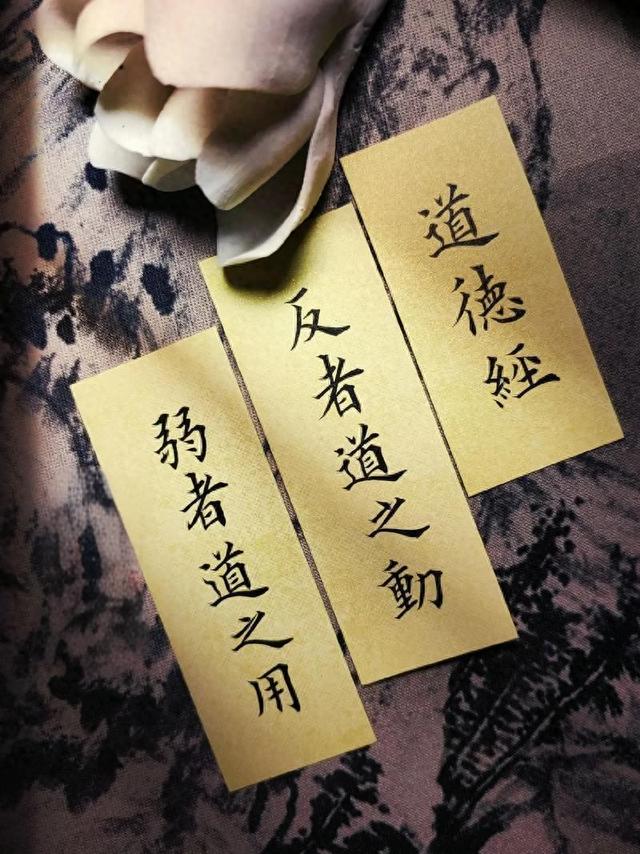 道德經
反者道之動
弱者道之用